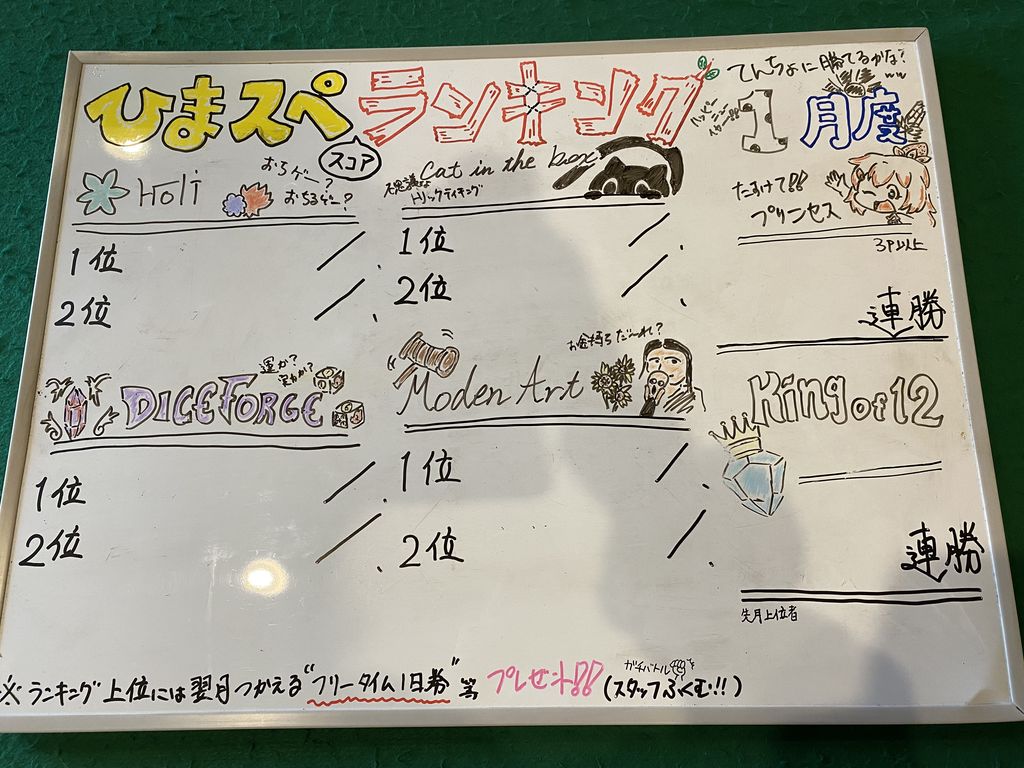 ひまスペランキング
てんちょに勝てるかな?
ww
ハッピー
1月度
スコア
Holi
おちゲー?
おちるゲー?
不思議な
トリックテイキング
Cat in the box!
たすけて!!
プリンセス
3P以上
1位 /.
2位 /.
1位 /.
2位 /.
連勝
DICE FORGE
運か?
実力か?
Moden Art
お金持ちだ〜れ?
King of 12
1位 /
2位 /.
1位 /.
2位 /.
連勝
先月上位者
※ランキング上位には翌月つかえる"フリータイム1日券"等プレゼント!!(スタッフふくむ!!)
ガチバトル